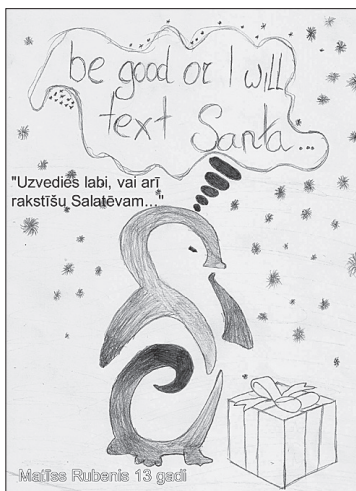 be good or I will
text Santa...
"Uzvedies labi, vai arī
rakstīšu Salatēvam..."
Matīss Rubenis 13 gadi